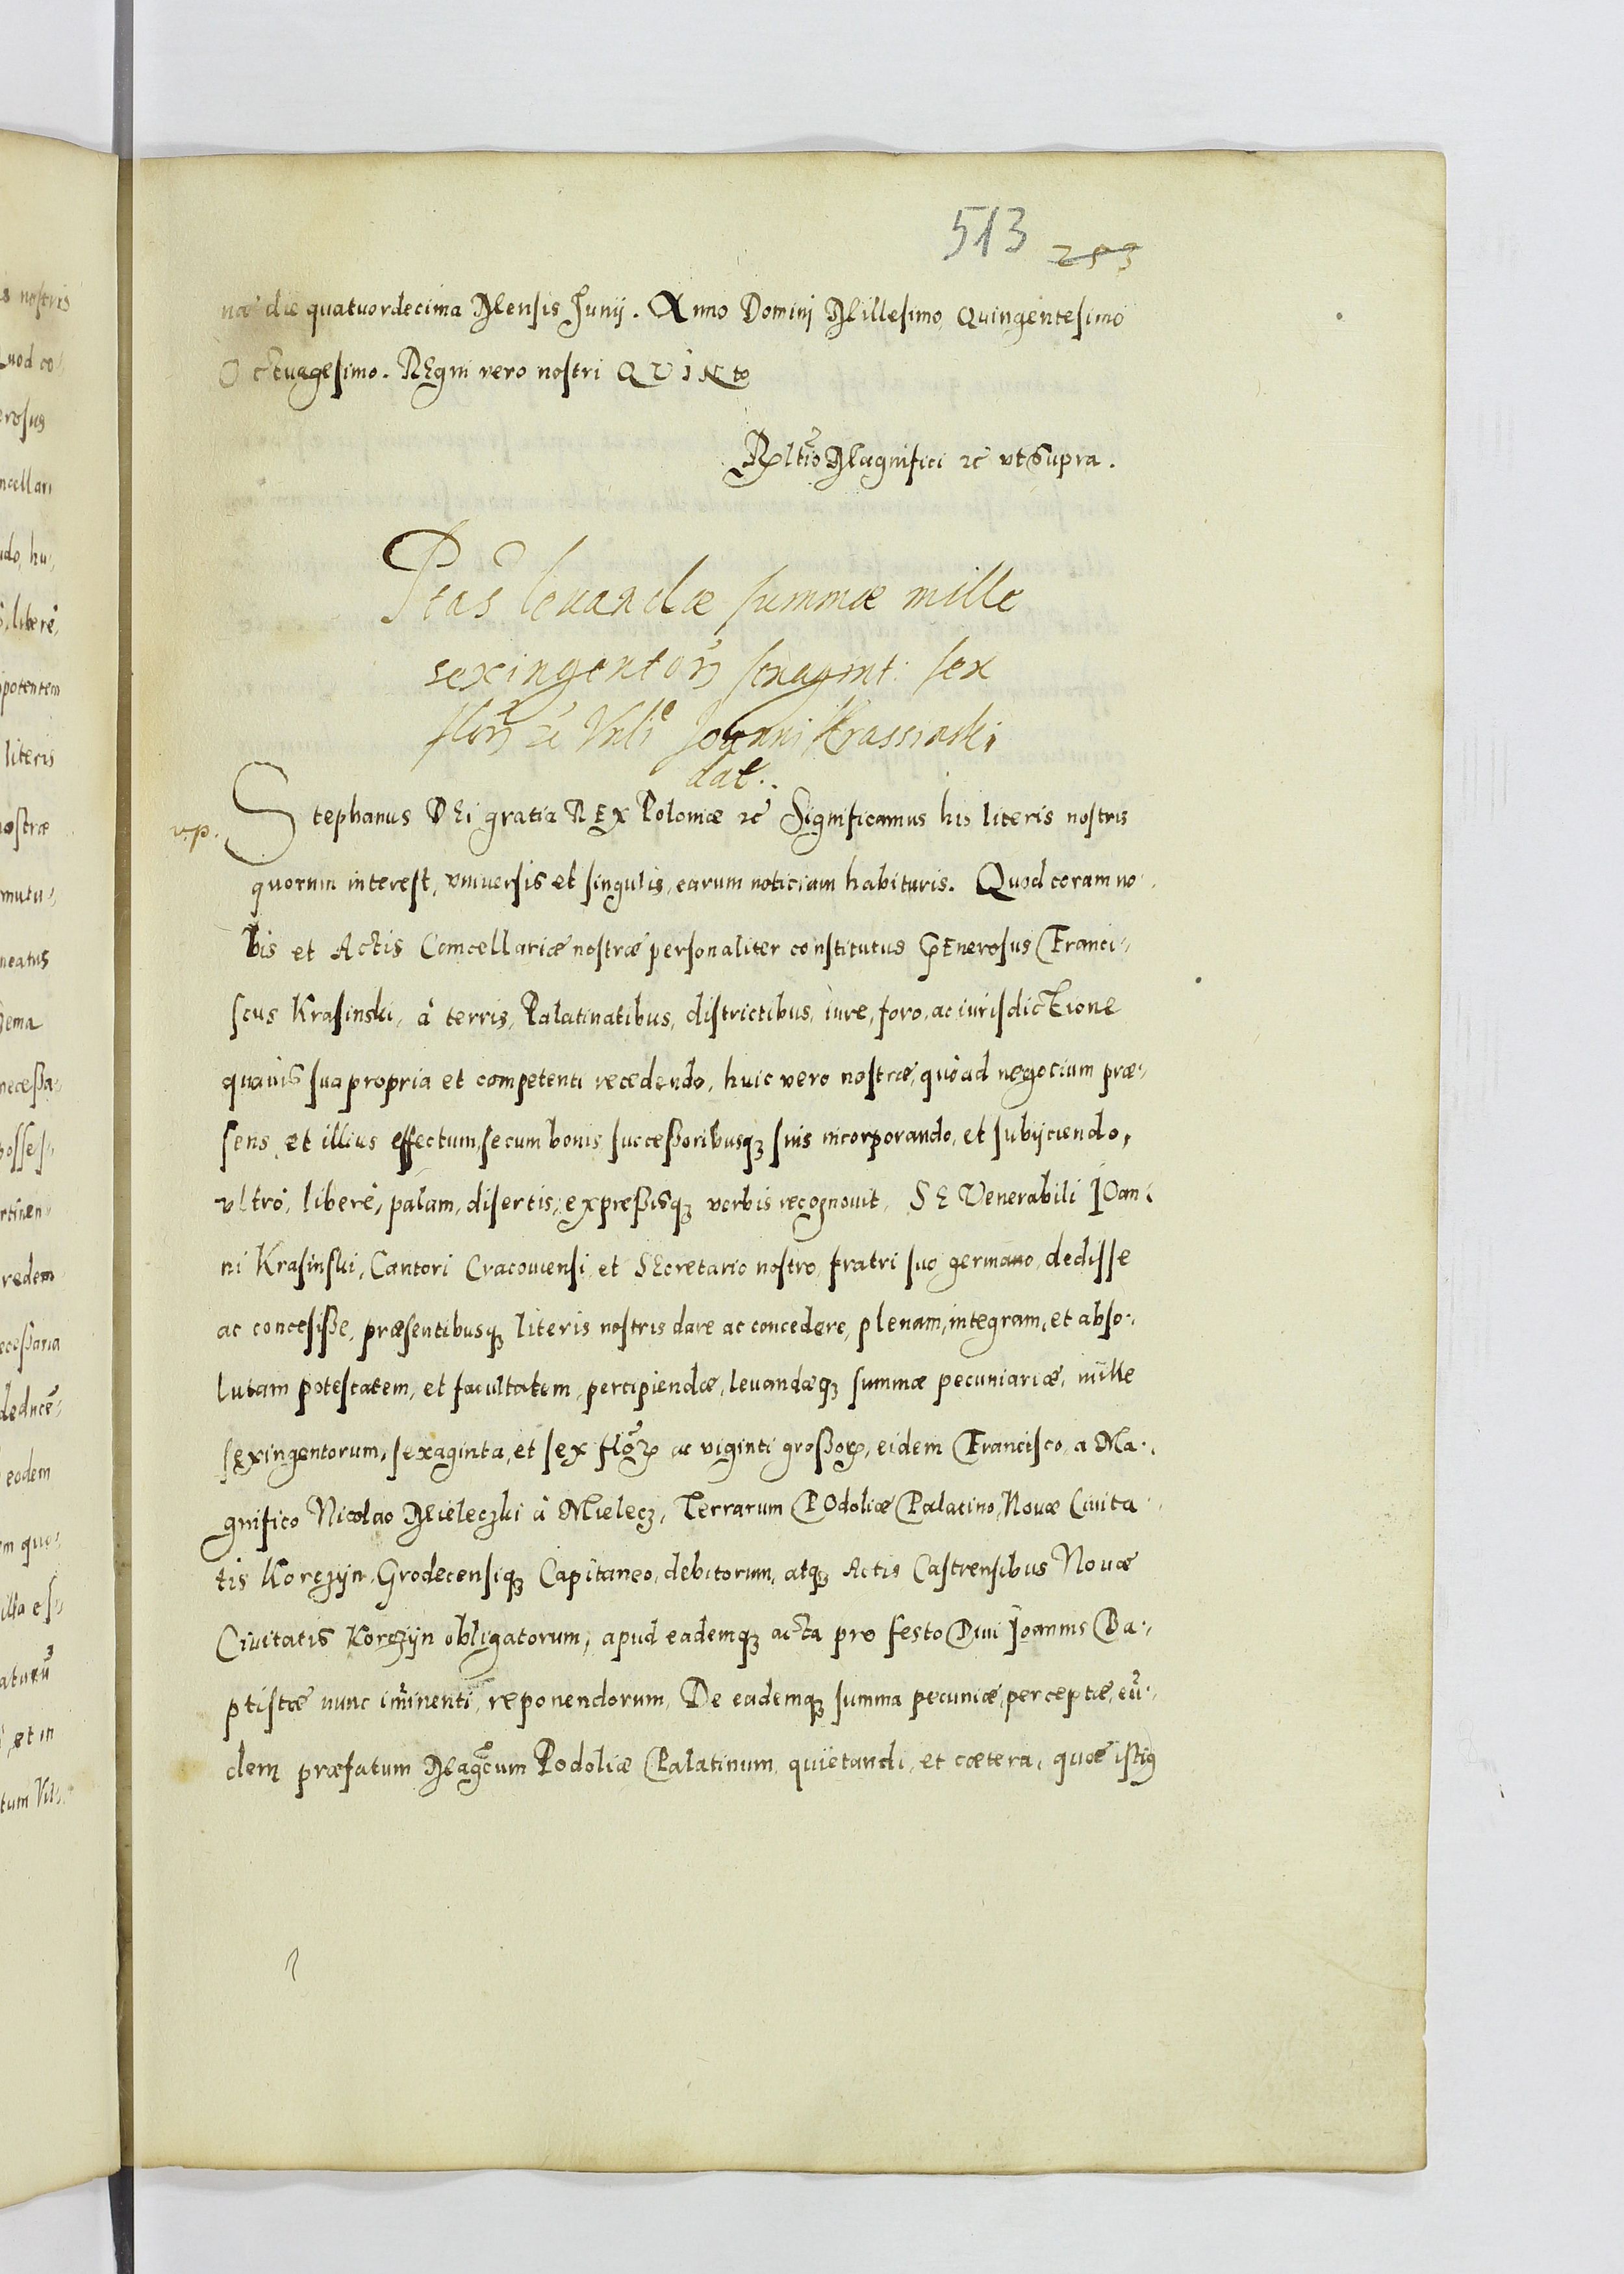 513 253
næ die quatuordecima Mensis Junij. Anno Domini Millesimo Quingentesimo
Octuagesimo. REgni vero nostri QVINto
Rltio Magnifici etc vt Supra.
Ptas leuandæ summæ mille
sexingentor sexagint: sex
flor Joanni Krassinski
dat.
v.p.
Stephanus DEi gratia REX Poloniæ etc Significamus his literis nostris
quorum interest, vniuersis et singulis, earum noticiam habituris. Quod coram no-
bis et Actis Cancellariæ nostræ personaliter constitutus GEnerosus Franci-
scus Krasinski, à terris, Palatinatibus, districtibus, iure, foro, ac iurisdictione
quauis sua propria et competenti recedendo, huic vero nostræ, quòad negocium præ-
sens et illius effectum, se cum bonis successoribusq3 suis incorporando, et subijciendo,
vltrò, liberè, palam, disertis, expressisq3 verbis recognouit, SE Venerabili IOan-
ni Krasinski, Cantori Cracouiensi, et SEcretario nostro, fratri suo germano, dedisse
ac concesisse, præsentibusq3 literis nostris dare ac concedere, plenam, integram, et abso-
lutam potestatem, et facultatem, percipiendæ, leuandæq3 summæ pecuniariæ, mille
sexingentorum, sexaginta, et sex flor ac viginti grossor, eidem Francisco, a Ma-
gnifico Nicolao Mieleczki à Mielecz, Terrarum POdoliæ Palatino, Nouæ Ciuita-
tis Korczijn, Grodecensiq3 Capitaneo, debitorum, atq3 Actis Castrensibus Nouæ
Ciuitatis Korczijn obligatorum, apud eademq3 acta pro festo Diui Joannis Ba-
ptistæ nunc im̃inenti, reponendorum, De eademq3 summa pecuniæ, perceptæ, eũ-
dem præfatum Magcum Podoliæ Palatinum, quietandi, et cætera, quæ istius